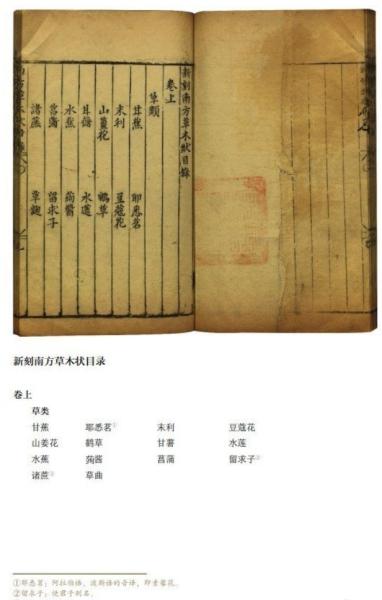 新刻南方草木狀目錄
卷上
草類
甘蕉 耶悉茗
末利 豆蔻花
山薑花 鶴草
甘藷 水蓮
水蕉 蒟醬
菖蒲 留求子
諸蔗 草麯
新刻南方草木状目录
卷上
草类
甘蕉 耶悉茗① 末利 豆蔻花
山姜花 鹤草 甘薯 水莲
水蕉 蒟酱 菖蒲 留求子②
诸蔗 草曲
①耶悉茗：阿拉伯语、波斯语的音译，即素馨花。
②留求子：使君子别名。